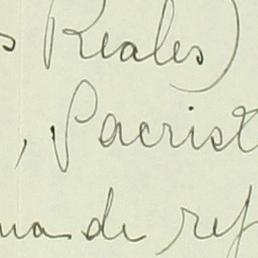 s Reales)
, Sacrist
ma de ref